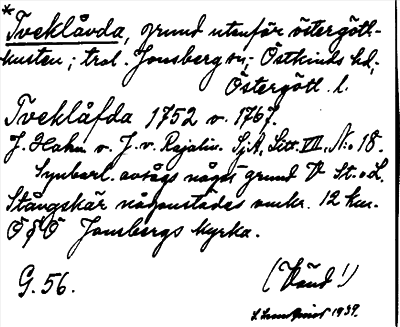 * Tveklåvda, grund utanför östergöt-
kusten; trol. Jonsberg sn, Östkinds hd,
Östergötl. l.
Tveklåfda 1752 v. 1767.
J. Hahn v. J. v. Rajalin. SjA, Litt. VII. No 18.
Synberl. avsågs något grund V St. o L.
Stångskär någonstädes omkr. 12 km.
Ö Jonsbergs kyrka.
G. 56.
(Känd!)
1939.